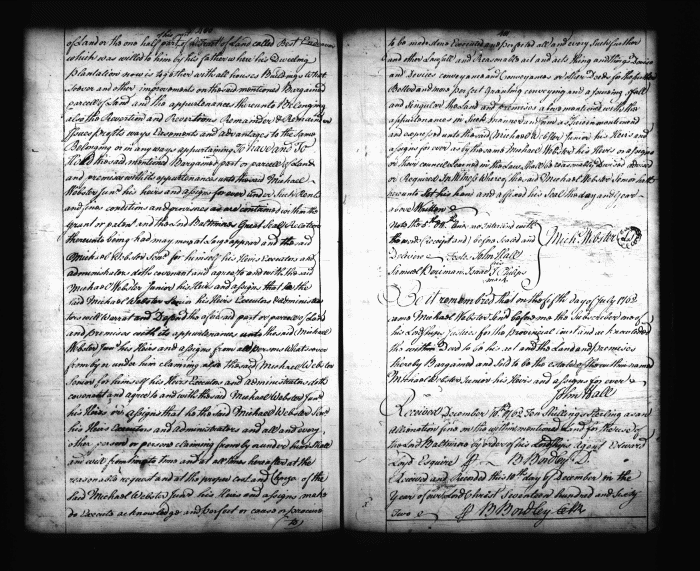 of Land or the one half part of a Tract of Land called Best
which was willed to him by his father where his Dweling
plantation now is together with all houses Buildings
soever and other improvements on the said mentioned Bargained
parcell of Land and the appurtenances thereunto Belonging
also the Reversion and Reversions Remainder & Remainders
thereof rights ways Easements and advantages to the same
Belonging or in any ways appurtaining To Have and To
Hold the said mentioned Bargained part or parcell of Land
and premises with its appurtenances unto the said Michael
Webster Junr his Heirs and assigns for ever under such Rents
and fines conditions and provisoes as are contained within the
grant or patent and the Lord Baltimores Great Seal Relation
thereunto being had may more at large appear and the said
Michael Webster Senr for himself his Heirs Executors and
administrators doth covenant and agree to and with the said
Michael Webster Junior his Heirs and assigns that he the
said Michael Webster Senior his Heirs Executors & administra
tors will Warrat and Defend the aforesaid part or parcel of Land
and premises with its appurtenances unto the said Michael
Webster Junr his Heirs and assigns from all persons Whatsoever
from by or under him claiming also the said Michael Webster
Senior for himself his Heirs Executors and administrators doth
covenant and agree to and with the said Michael Webster Junr
his Heirs or assigns that he the said Michael Webster Senr
his Heirs Executors and administrators and all and every
other person or persons claiming from by or under him shall
and will from time to time and at all times hereafter at the
reasonable request and at the proper cost and Charge of the
said Michael Webster Junr his Heirs and assigns make
do Execute acknowledge and perfect or cause or procure
to
to be made done Executed and perfected all and every such further
and other Lawfull and Reasonable act and acts thing and things Device
and devices conveyance and Conveyances or other Deeds for the further
Better and more perfect Granting conveying and assuring of all
and singular the Land and premises above mentioned with the
appurtenances in such manner and form as herein mentioned
and expressed unto the said Michael Webster Junior his Heirs and
assigns for ever as by the said Michael Webster his Heirs or assigns
or their council Learned in the Law shall be reasonably devised advised
or Required In Witness Whereof the said Michael Webster senior hath
hereunto set his hand and affixed his Seal the day and year
above Written
the word (receipt and) before sealed and
Delivered
Teste John Hall
Mich. Webster
Samuel Isaac
mark
Be it remembered that on the fifth day of July 1762
came Michael Webster before me the Subscriber one of
his Lordships Justices for the Provincial Court and acknowledged
the within Deed to be his act and the Land and premises
thereby Bargained and Sold to be the estate of the within named
Michael Webster Junior his Heirs and assigns for ever
John Hall
Received December 10th 1762 Ten Shillings Sterling as an
alienation fine on the within mentioned Land for the use of
the Lord Baltimore by order of his Lordships Agent Edward
Loyd Esquire
B Bordley D.
Received and Recorded this 10th day of December in the
Year of our Lord Christ Seventeen hundred and Sixty
Two
B Bordley Clk